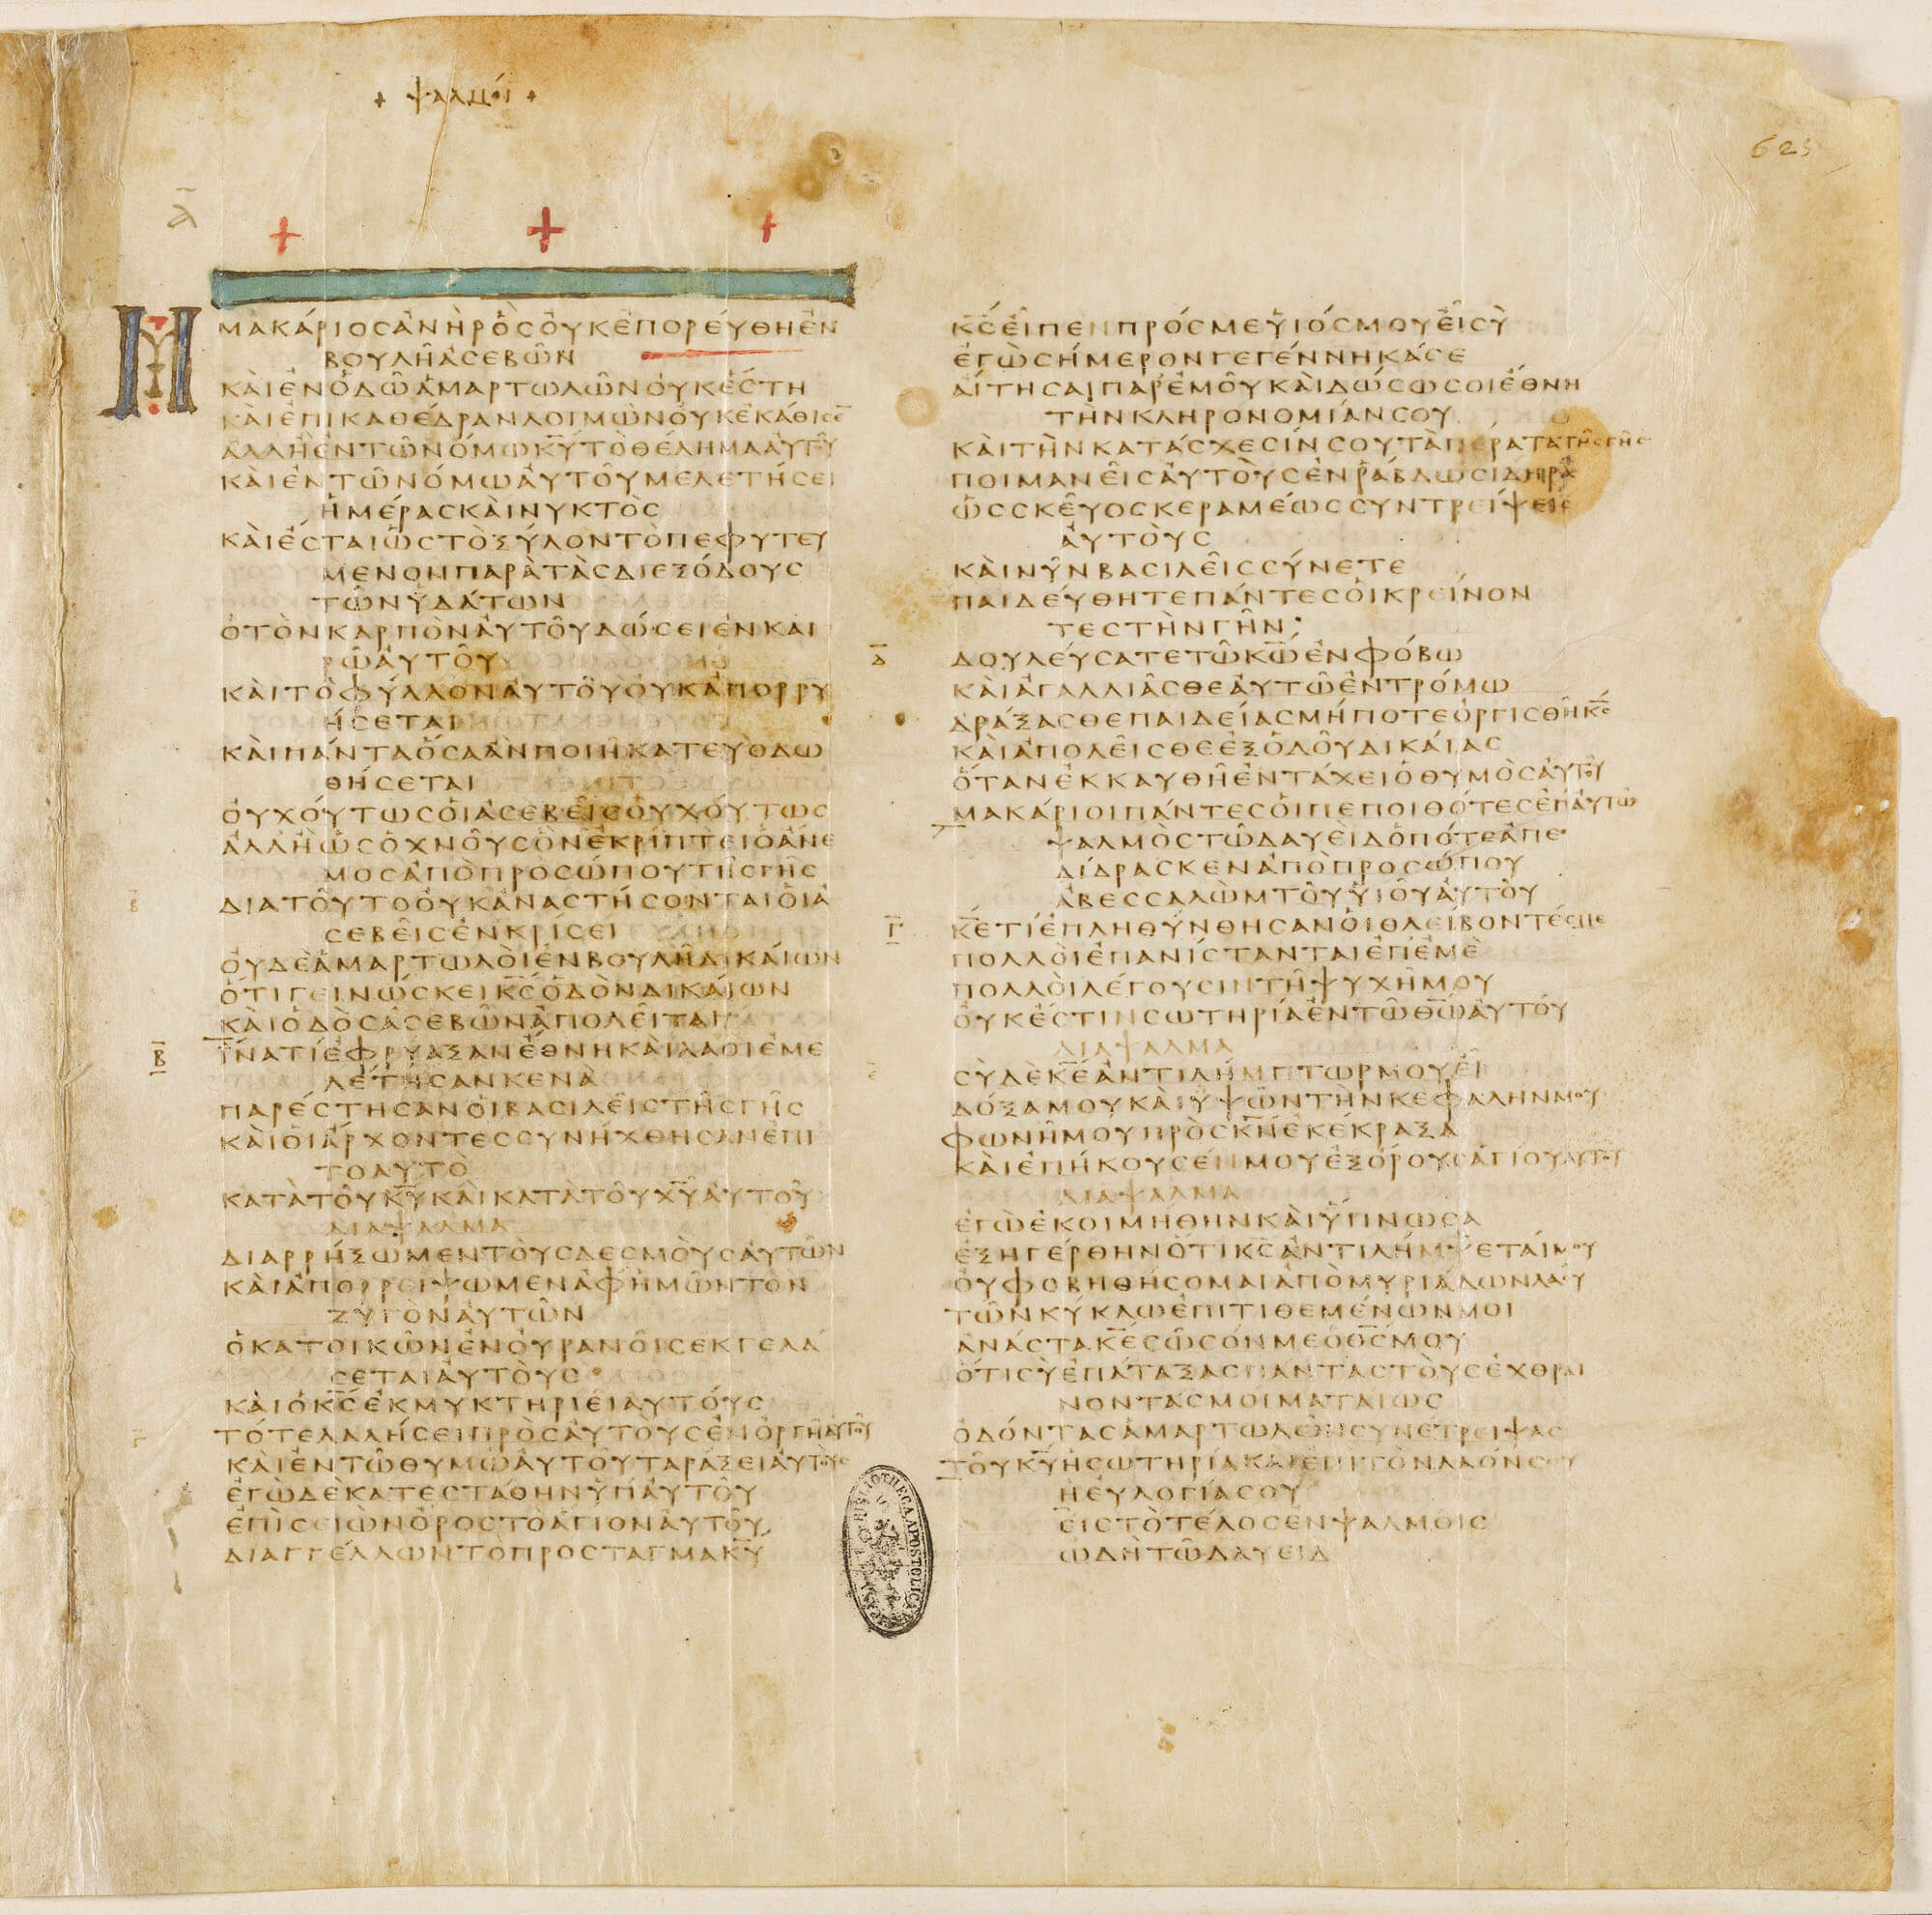 + ψαλμοί +
625
Α
ΜΑΚΑΡΙΟΣΑΝΗΡΟΣΟΥΚΕΠΟΡΕΥΘΗΕΝ
ΒΟΥΛΗΑΣΕΒΩΝ
ΚΑΙΕΝΟΔΩΑΜΑΡΤΩΛΩΝΟΥΚΕΣΤΗ
ΚΑΙΕΠΙΚΑΘΕΔΡΑΝΛΟΙΜΩΝΟΥΚΕΚΑΘΙΣΕ̅
ΑΛΛΗΕΝΤΩΝΟΜΩΚ̅Υ̅ΤΟΘΕΛΗΜΑΑΥΤΟΥ
ΚΑΙΕΝΤΩΝΟΜΩΑΥΤΟΥΜΕΛΕΤΗΣΕΙ
ΗΜΕΡΑΣΚΑΙΝΥΚΤΟΣ
ΚΑΙΕΣΤΑΙΩΣΤΟΞΥΛΟΝΤΟΠΕΦΥΤΕΥ
ΜΕΝΟΝΠΑΡΑΤΑΣΔΙΕΞΟΔΟΥΣ
ΤΩΝΥΔΑΤΩΝ
ΟΤΟΝΚΑΡΠΟΝΑΥΤΟΥΔΩΣΕΙΕΝΚΑΙ
ΡΩΑΥΤΟΥ
ΚΑΙΤΟΦΥΛΛΟΝΑΥΤΟΥΟΥΚΑΠΟΡΡΥ
ΗΣΕΤΑΙ
ΚΑΙΠΑΝΤΑΟΣΑΑΝΠΟΙΗΚΑΤΕΥΟΔΩ
ΘΗΣΕΤΑΙ
ΟΥΧΟΥΤΩΣΟΙΑΣΕΒΕΙΣΟΥΧΟΥΤΩΣ
ΑΛΛΗΩΣΟΧΝΟΥΣΟΝΕΚΡΙΠΤΕΙΟΑΝΕ
ΜΟΣΑΠΟΠΡΟΣΩΠΟΥΤΗΣΓΗΣ
ΔΙΑΤΟΥΤΟΟΥΚΑΝΑΣΤΗΣΟΝΤΑΙΟΙΑ
ΣΕΒΕΙΣΕΝΚΡΙΣΕΙ
ΟΥΔΕΑΜΑΡΤΩΛΟΙΕΝΒΟΥΛΗΔΙΚΑΙΩΝ
ΟΤΙΓΕΙΝΩΣΚΕΙΚ̅Σ̅ΟΔΟΝΔΙΚΑΙΩΝ
ΚΑΙΟΔΟΣΑΣΕΒΩΝΑΠΟΛΕΙΤΑΙ
Β
ΙΝΑΤΙΕΦΡΥΑΞΑΝΕΘΝΗΚΑΙΛΑΟΙΕΜΕ
ΛΕΤΗΣΑΝΚΕΝΑ
ΠΑΡΕΣΤΗΣΑΝΟΙΒΑΣΙΛΕΙΣΤΗΣΓΗΣ
ΚΑΙΟΙΑΡΧΟΝΤΕΣΣΥΝΗΧΘΗΣΑΝΕΠΙ
ΤΟΑΥΤΟ
ΚΑΤΑΤΟΥΚ̅Υ̅ΚΑΙΚΑΤΑΤΟΥΧ̅Υ̅ΑΥΤΟΥ
ΔΙΑΨΑΛΜΑ
ΔΙΑΡΡΗΞΩΜΕΝΤΟΥΣΔΕΣΜΟΥΣΑΥΤΩΝ
ΚΑΙΑΠΟΡΡΕΙΨΩΜΕΝΑΦΗΜΩΝΤΟΝ
ΖΥΓΟΝΑΥΤΩΝ
ΟΚΑΤΟΙΚΩΝΕΝΟΥΡΑΝΟΙΣΕΚΓΕΛΑ
ΣΕΤΑΙΑΥΤΟΥΣ
ΚΑΙΟΚ̅Σ̅ΕΚΜΥΚΤΗΡΙΕΙΑΥΤΟΥΣ
ΤΟΤΕΛΑΛΗΣΕΙΠΡΟΣΑΥΤΟΥΣΕΝΟΡΓΗΑΥΤΟΥ
ΚΑΙΕΝΤΩΘΥΜΩΑΥΤΟΥΤΑΡΑΞΕΙΑΥΤΟΥΣ
ΕΓΩΔΕΚΑΤΕΣΤΑΘΗΝΥΠΑΥΤΟΥ
ΕΠΙΣΕΙΩΝΟΡΟΣΤΟΑΓΙΟΝΑΥΤΟΥ
ΔΙΑΓΓΕΛΛΩΝΤΟΠΡΟΣΤΑΓΜΑΚ̅Υ̅
Κ̅Σ̅ΕΙΠΕΝΠΡΟΣΜΕΥΙΟΣΜΟΥΕΙΣΥ
ΕΓΩΣΗΜΕΡΟΝΓΕΓΕΝΝΗΚΑΣΕ
ΑΙΤΗΣΑΙΠΑΡΕΜΟΥΚΑΙΔΩΣΩΣΟΙΕΘΝΗ
ΤΗΝΚΛΗΡΟΝΟΜΙΑΝΣΟΥ
ΚΑΙΤΗΝΚΑΤΑΣΧΕΣΙΝΣΟΥΤΑΠΕΡΑΤΑΤΗΣΓΗΣ
ΠΟΙΜΑΝΕΙΣΑΥΤΟΥΣΕΝΡΑΒΔΩΣΙΔΗΡΑ
ΩΣΣΚΕΥΟΣΚΕΡΑΜΕΩΣΣΥΝΤΡΕΙΨΕΙΣ
ΑΥΤΟΥΣ
ΚΑΙΝΥΝΒΑΣΙΛΕΙΣΣΥΝΕΤΕ
ΠΑΙΔΕΥΘΗΤΕΠΑΝΤΕΣΟΙΚΡΕΙΝΟΝ
ΤΕΣΤΗΝΓΗΝ
Δ
ΔΟΥΛΕΥΣΑΤΕΤΩΚ̅Ω̅ΕΝΦΟΒΩ
ΚΑΙΑΓΑΛΛΙΑΣΘΕΑΥΤΩΕΝΤΡΟΜΩ
ΔΡΑΞΑΣΘΕΠΑΙΔΕΙΑΣΜΗΠΟΤΕΟΡΓΙΣΘΗΚ̅Σ̅
ΚΑΙΑΠΟΛΕΙΣΘΕΕΞΟΔΟΥΔΙΚΑΙΑΣ
ΟΤΑΝΕΚΚΑΥΘΗΕΝΤΑΧΕΙΟΘΥΜΟΣΑΥΤΟΥ
ΜΑΚΑΡΙΟΙΠΑΝΤΕΣΟΙΠΕΠΟΙΘΟΤΕΣΕΠΑΥΤΩ
ΨΑΛΜΟΣΤΩΔΑΥΕΙΔΟΠΟΤΕΑΠΕ
ΔΙΔΡΑΣΚΕΝΑΠΟΠΡΟΣΩΠΟΥ
ΑΒΕΣΣΑΛΩΜΤΟΥΥΙΟΥΑΥΤΟΥ
Γ
Κ̅Ε̅ΤΙΕΠΛΗΘΥΝΘΗΣΑΝΟΙΘΛΕΙΒΟΝΤΕΣΜΕ
ΠΟΛΛΟΙΕΠΑΝΙΣΤΑΝΤΑΙΕΠΕΜΕ
ΠΟΛΛΟΙΛΕΓΟΥΣΙΝΤΗΨΥΧΗΜΟΥ
ΟΥΚΕΣΤΙΝΣΩΤΗΡΙΑΕΝΤΩΘ̅Ω̅ΑΥΤΟΥ
ΔΙΑΨΑΛΜΑ
ΣΥΔΕΚ̅Ε̅ΑΝΤΙΛΗΜΠΤΩΡΜΟΥΕΙ
ΔΟΞΑΜΟΥΚΑΙΥΨΩΝΤΗΝΚΕΦΑΛΗΝΜΟΥ
ΦΩΝΗΜΟΥΠΡΟΣΚ̅Ν̅ΕΚΕΚΡΑΞΑ
ΚΑΙΕΠΗΚΟΥΣΕΝΜΟΥΕΞΟΡΟΥΣΑΓΙΟΥΑΥΤΟΥ
ΔΙΑΨΑΛΜΑ
ΕΓΩΕΚΟΙΜΗΘΗΝΚΑΙΥΠΝΩΣΑ
ΕΞΗΓΕΡΘΗΝΟΤΙΚ̅Σ̅ΑΝΤΙΛΗΜΨΕΤΑΙΜΟΥ
ΟΥΦΟΒΗΘΗΣΟΜΑΙΑΠΟΜΥΡΙΑΔΩΝΛΑΟΥ
ΤΩΝΚΥΚΛΩΕΠΙΤΙΘΕΜΕΝΩΝΜΟΙ
ΑΝΑΣΤΑΚ̅Ε̅ΣΩΣΟΝΜΕΟΘ̅Σ̅ΜΟΥ
ΟΤΙΣΥΕΠΑΤΑΞΑΣΠΑΝΤΑΣΤΟΥΣΕΧΘΡΑΙ
ΝΟΝΤΑΣΜΟΙΜΑΤΑΙΩΣ
ΟΔΟΝΤΑΣΑΜΑΡΤΩΛΩΝΣΥΝΕΤΡΕΙΨΑΣ
ΤΟΥΚ̅Υ̅ΗΣΩΤΗΡΙΑΚΑΙΕΠΙΤΟΝΛΑΟΝΣΟΥ
ΗΕΥΛΟΓΙΑΣΟΥ
ΕΙΣΤΟΤΕΛΟΣΕΝΨΑΛΜΟΙΣ
ΩΔΗΤΩΔΑΥΕΙΔ